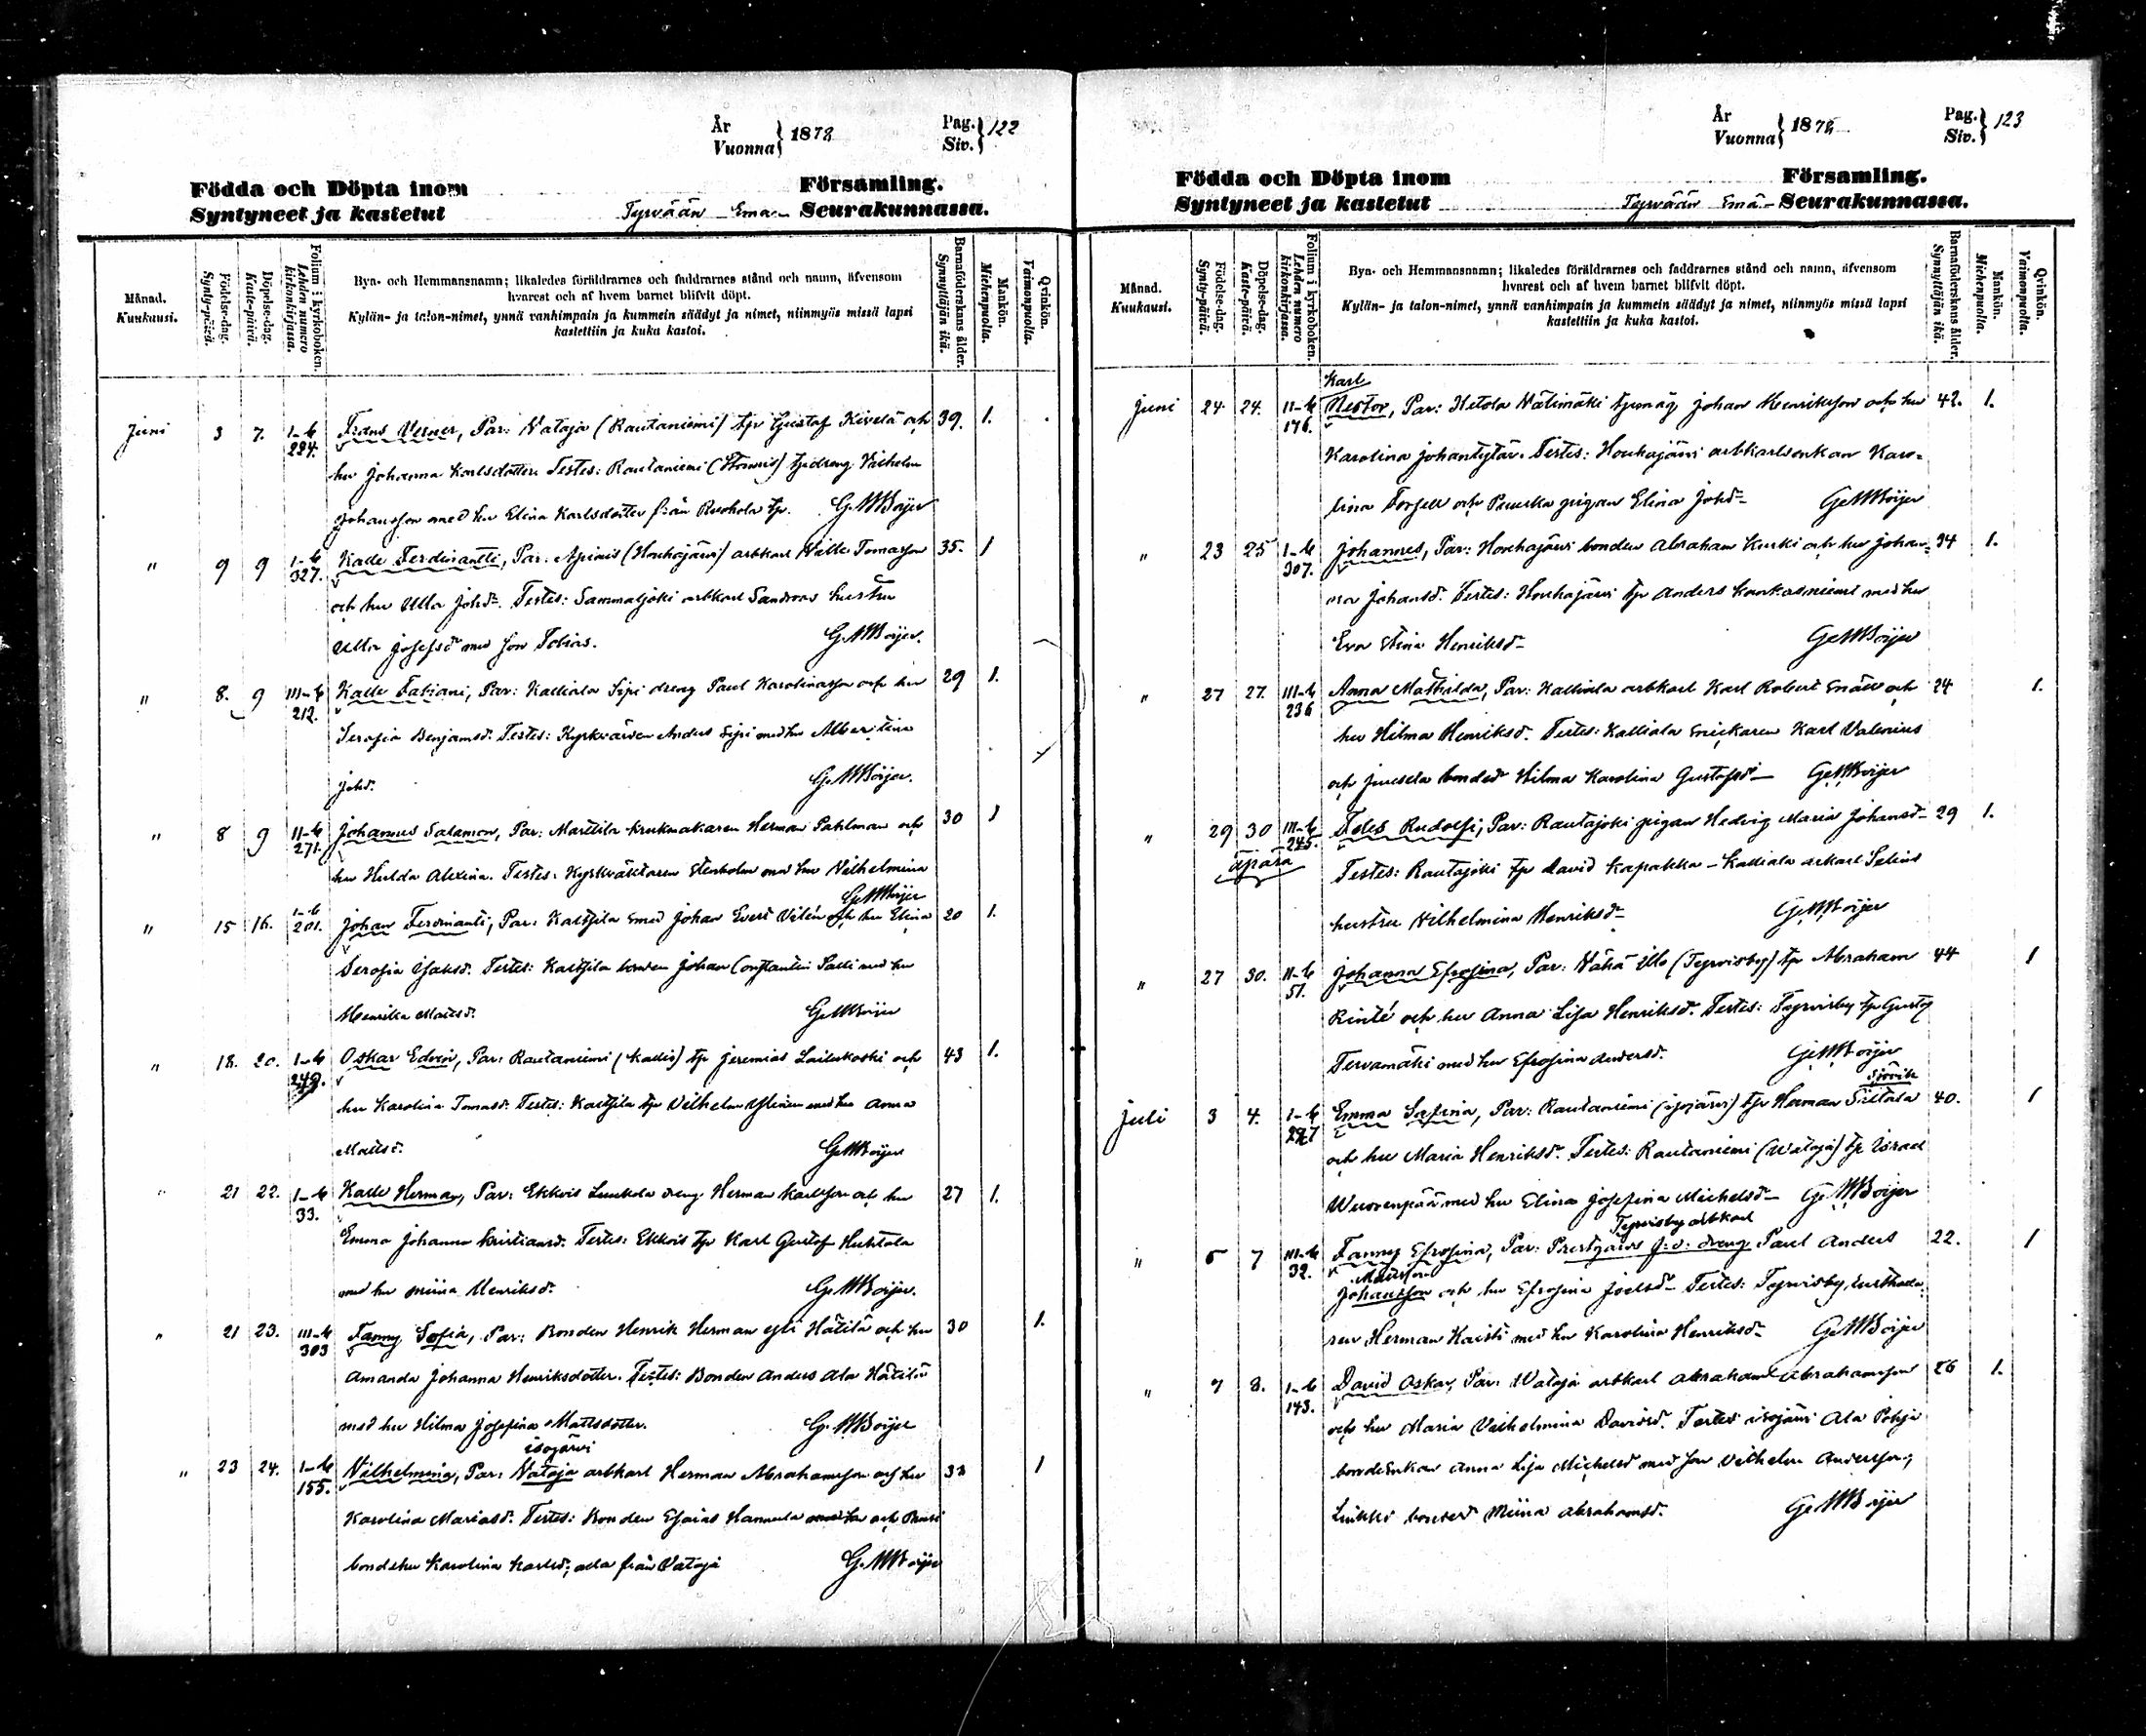 År
Vuonna } 1878
Pag.
Siv. } 122
Födda och Döpta inom Församling.
Syntyneet ja kastetut Tyrvään Emä- Seurakunnassa.
Månad.
Kuukausi.
Födelse-dag.
Synty-päivä.
Döpelse-dag.
Kaste-päivä.
Folium i kyrkoboken.
Lehden numero kirkonkirjassa.
Bya- och Hemmansnamn; likaledes föräldrarnes och faddrarnes stånd och namn, äfvensom
hvarest och af hvem barnet blifvit döpt.
Kylän- ja talon-nimet, ynnä vanhimpain ja kummein säädyt ja nimet, niinmyös missä lapsi
kastettiin ja kuka kastoi.
Barnaföderskans ålder.
Synnyttäjän ikä.
Mankön.
Miehenpuolta.
Qvinkön.
Vaimonpuolta.
Juni 3 7. 284. Frans Verner, Par: Vataja (Rautaniemi) tpr Gustaf Kivelä och 39. 1.
hu Johanna Karlsdotter. Testes: Rautaniemi tpdreng Vilhelm
Johansson med hu Elina Karlsdotter från Ruohola tp. G. M Böijer
" 9 9 327. Kalle Ferdinantti, Par. (Houhajärvi) arbkarl Ville Tomasson 35. 1
och hu Ulla Johd. Testes: Sammaljoki arbkarl hustru
Ulla Josefsd med son Tobias. G. M Böijer.
" 8. 9 212. Kalle Fabiani, Par: Kalliala Sipi dreng Paul Karolinasson och hu 29 1.
Serafia Benjamsd. Testes: Kyrkvärden Anders Sipi med hu Albertina
Johd. G. M Böijer.
" 8 9 271. Johannes Salamon, Par: Marttila krukmakaren Herman Pahlman och 30 1
hu Hulda Alexina. Testes: Kyrkväktaren Stenholm med hu Vilhelmina
G. M Böijer
" 15 16. 201. Johan Ferdinanti, Par: Kaltsila smed Johan Evert Vilén och hu Elina 20 1.
Serafia Isaksd. Testes: Kaltsila bonden Johan Constantin Salli med hu
Henrika Matsd. G. M Böijer
" 18. 20. 249. Oskar Edvin, Par: Rautaniemi (Kallis) tpr Jeremias Lailuskoski och 43 1.
hu Karolina Tomasd. Testes: Kaltsila tpr Vilhelm Ylinen med hu Anna
Mattsd. G. M Böijer
" 21 22. 33. Kalle Herman, Par: Ekkois Luukola dreng Herman Karlsson och hu 27 1.
Emma Johanna Kristiansd. Testes: Ekkois tpr Karl Gustaf Huhtala
med hu Miina Henriksd. G. M Böijer.
" 21 23. 303 Fanny Sofia, Par: Bonden Henrik Herman Yli Hätilä och hu 30 1.
Amanda Johanna Henriksdotter. Testes: Bonden Anders Ala Hätilä
med hu Hilma Josefina Mattsdotter. G. M Böijer
isojärvi
" 23 24. 155. Vilhelmina, Par: Vataja arbkarl Herman Abrahamsson och hu 33 1
Karolina Mariasd. Testes: Bonden Esaias Hannula med hu och
bondehu Karolina Karlsd, alla från Vataja G. M Böijer
År
Vuonna } 1878
Pag.
Siv. } 123
Födda och Döpta inom Församling.
Syntyneet ja kastetut Tyrvään Emä- Seurakunnassa.
Månad.
Kuukausi.
Födelse-dag.
Synty-päivä.
Döpelse-dag.
Kaste-päivä.
Folium i kyrkoboken.
Lehden numero kirkonkirjassa.
Bya- och Hemmansnamn; likaledes föräldrarnes och faddrarnes stånd och namn, äfvensom
hvarest och af hvem barnet blifvit döpt.
Kylän- ja talon-nimet, ynnä vanhimpain ja kummein säädyt ja nimet, niinmyös missä lapsi
kastettiin ja kuka kastoi.
Barnaföderskans ålder.
Synnyttäjän ikä.
Mankön.
Miehenpuolta.
Qvinkön.
Vaimonpuolta.
Karl
Juni 24. 24. 176. Nestor, Par: Välimäki Johan Henriksson och hu 42. 1.
Karolina Johantytär. Testes: Houhajärvi arbkarlsenkan Karo-
lina Forsell och pigan Elina Johd G. M Böijer
" 23 25 307. Johannes, Par: Houhajärvi bonden Abraham Kurki och hu Johan- 34 1.
na Johansd. Testes: Houhajärvi tpr Anders Kaukasniemi med hu
Eva Stina Henriksd G. M Böijer
" 27 27. 236 Anna Mathilda, Par: Kalliala arbkarl Karl Robert Snäll och 24 1.
hu Hilma Henriksd. Testes: Kalliala snickaren Karl Valenius
och bonded Hilma Karolina Gustafsd G. M Böijer
" 29 30 245. Rudolfi, Par: Rautajoki pigan Hedvig Maria Johansd 29 1.
äpärä
Testes: Rautajoki tpr David Kapakka - Kalliala arkarl Selins
hustru Vilhelmina Henriksd G. M Böijer
" 27 30. 51. Johanna Efrosina, Par: Vähä Ulo (Tyrvisby) tpr Abraham 44 1
Rinté och hu Anna Lisa Henriksd. Testes: Tyrvisby tpr Gustaf
Tervamäki med hu Efrosina Andersd. G. M Böijer
Sjövik
Juli 3 4. 297 Emma Safina, Par: Rautaniemi (isojärvi) tpr Herman Siltala 40. 1
och hu Maria Henriksd. Testes: Rautaniemi (Wataja) tpr Israel
Wuorenpää med hu Elina Josefina Michelsd G. M Böijer
Tyrvisby arbkarl
" 5 7 32. Fanny Efrosina, Par: Prestgårds f: d: dreng Paul Anders 22. 1
Mattsson
Johansson och hu Efrosina Joelsd Testes: Tyrvisby
ren Herman Kaisti med hu Karolina Henriksd G. M Böijer
" 7 8. 143. David Oskar, Par: Wataja arbkarl Abraham Abrahamsson 26 1.
och hu Maria Vilhelmina Davidsd. Testes isojärvi Ala Pohja
bondeenkan Anna Lisa Michelsd med son Vilhelm Andersson,
bonded Miina Abrahamsd. G. M Böijer